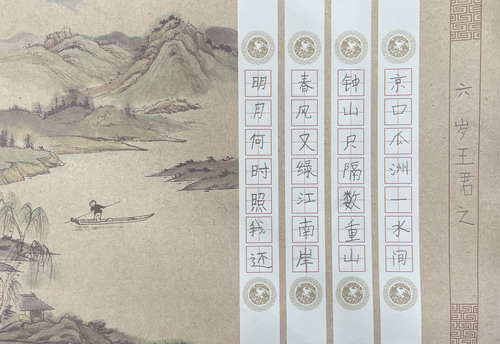 京口瓜洲一水间
钟山只隔数重山
春风又绿江南岸
明月何时照我还
六岁王君之